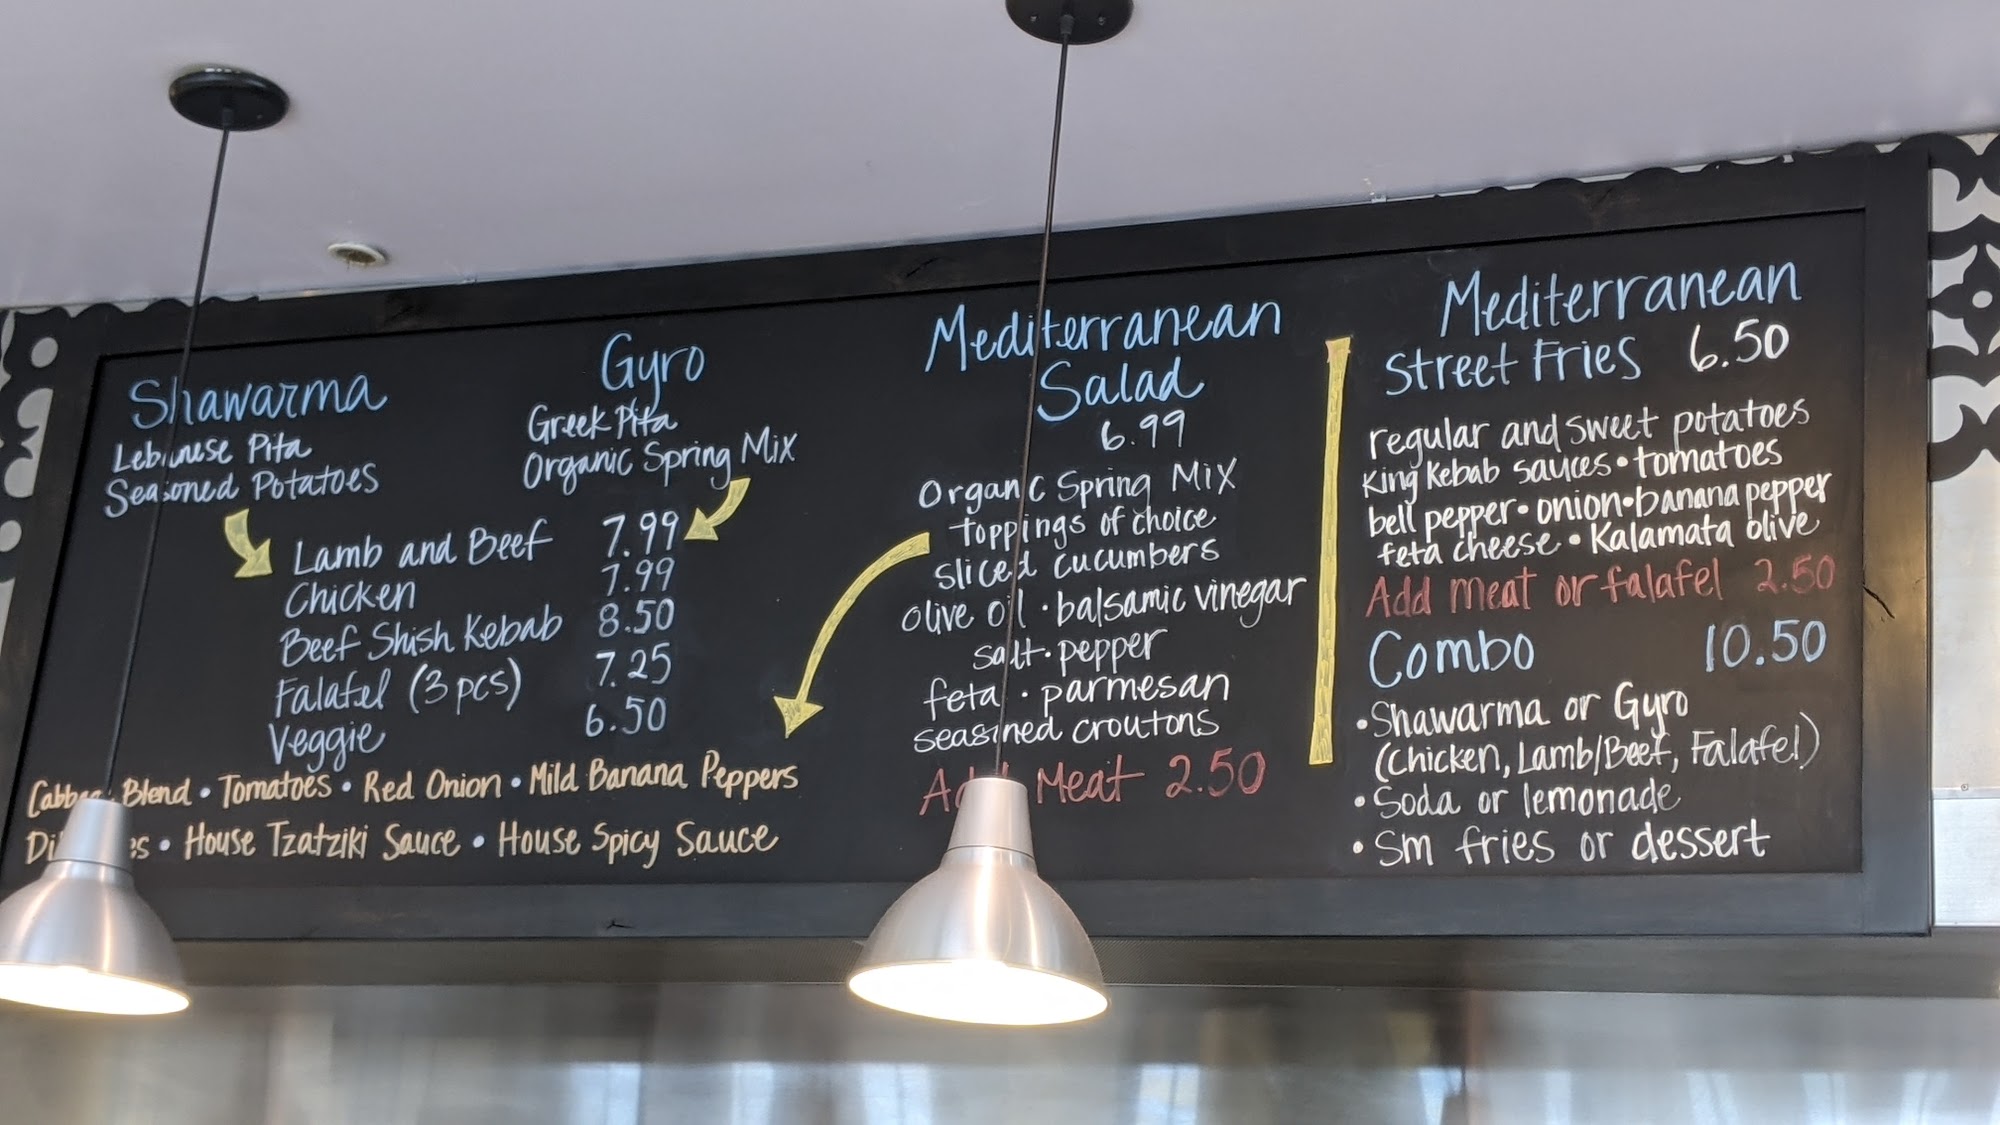 Shawarma
Lebanese Pita
Seasoned Potatoes
Gyro
Greek Pita
Organic Spring Mix
Lamb and Beef 7.99
Chicken 7.99
Beef Shish Kebab 8.50
Falafel (3 pcs) 7.25
Veggie 6.50
Blend • Tomatoes • Red Onion • Mild Banana Peppers
• House Tzatziki Sauce • House Spicy Sauce
Mediterranean
Salad
6.99
Organic Spring Mix
toppings of choice
sliced cucumbers
olive oil • balsamic vinegar
salt • pepper
feta • parmesan
seasoned croutons
Add Meat 2.50
Mediterranean
Street Fries 6.50
regular and sweet potatoes
King Kebab sauces • tomatoes
bell pepper • onion • banana pepper
feta cheese • Kalamata olive
Add meat or falafel 2.50
Combo 10.50
• Shawarma or Gyro
(Chicken, Lamb/Beef, Falafel)
• Soda or lemonade
• Sm fries or dessert